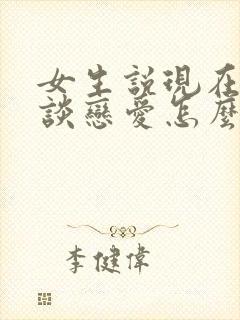 女生説現在
談戀愛怎麼
李健偉